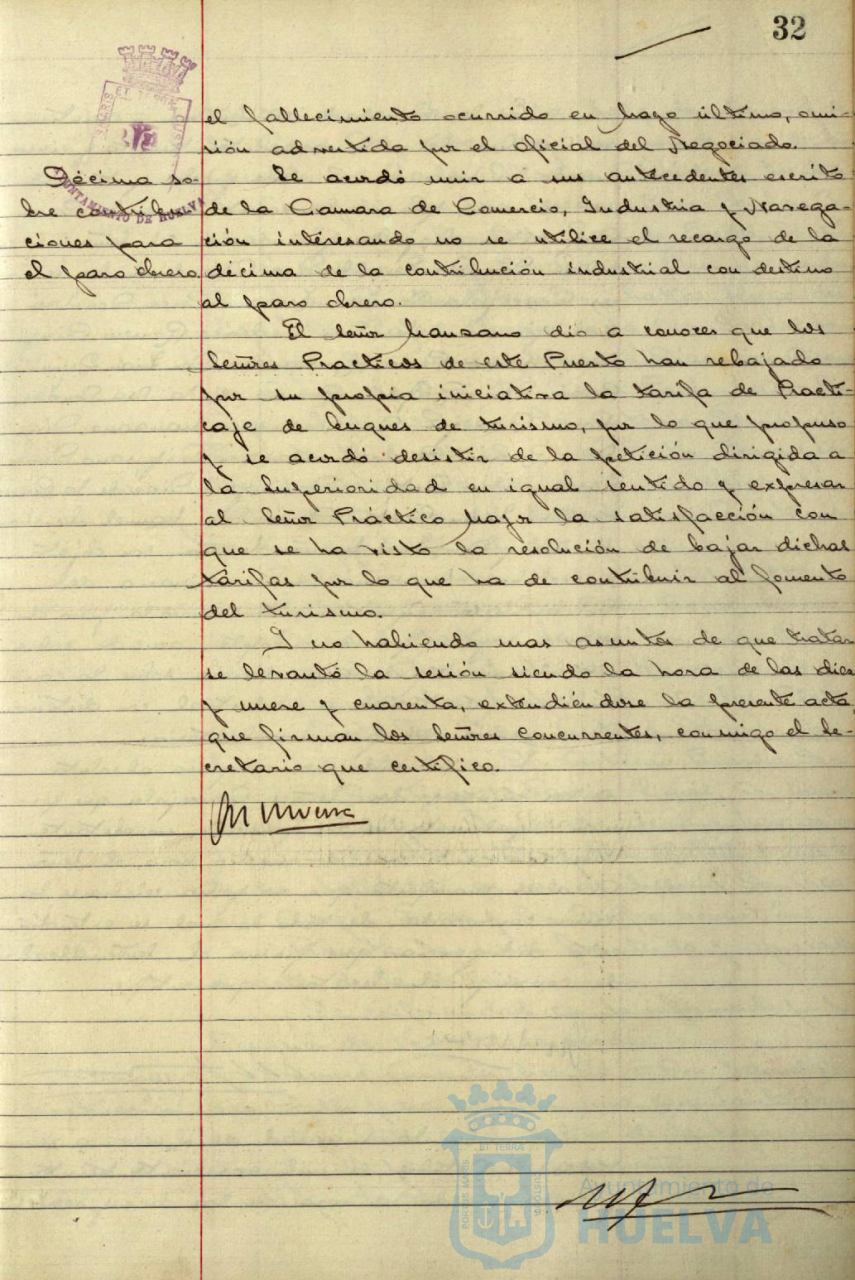 32
el fallecimiento ocurrido en Mayo último, omi-
sión advertida por el oficial del Negociado.
Décima so-
bre contribu-
ciones para
el paro obrero.
Se acordó unir a sus antecedentes escrito
de la Camara de Comercio, Industria y Navega-
ción interesando no se utilice el recargo de la
décima de la contribución industrial con destino
al paro obrero.
El Señor Manzano dió a conocer que los
Señores Practicos de este Puerto han rebajado
por su propia iniciativa la tarifa de Practi-
caje de buques de turismo, por lo que propuso
y se acordó desistir de la petición dirigida a
la Superioridad en igual sentido y expresar
al Señor Práctico Mayor la satisfacción con
que se ha visto la resolución de bajar dichas
tarifas por lo que ha de contribuir al fomento
del turismo.
Y no habiendo mas asuntos de que tratar
se levantó la sesión siendo la hora de las diez
y nueve y cuarenta, extendiéndose la presente acta
que firman los Señores concurrentes, conmigo el Se-
cretario que certifico.
AYUNTAMIENTO DE HUELVA
PORTUS MARIS
ET TERRE
CUSTODIA
Ayuntamiento de
HUELVA